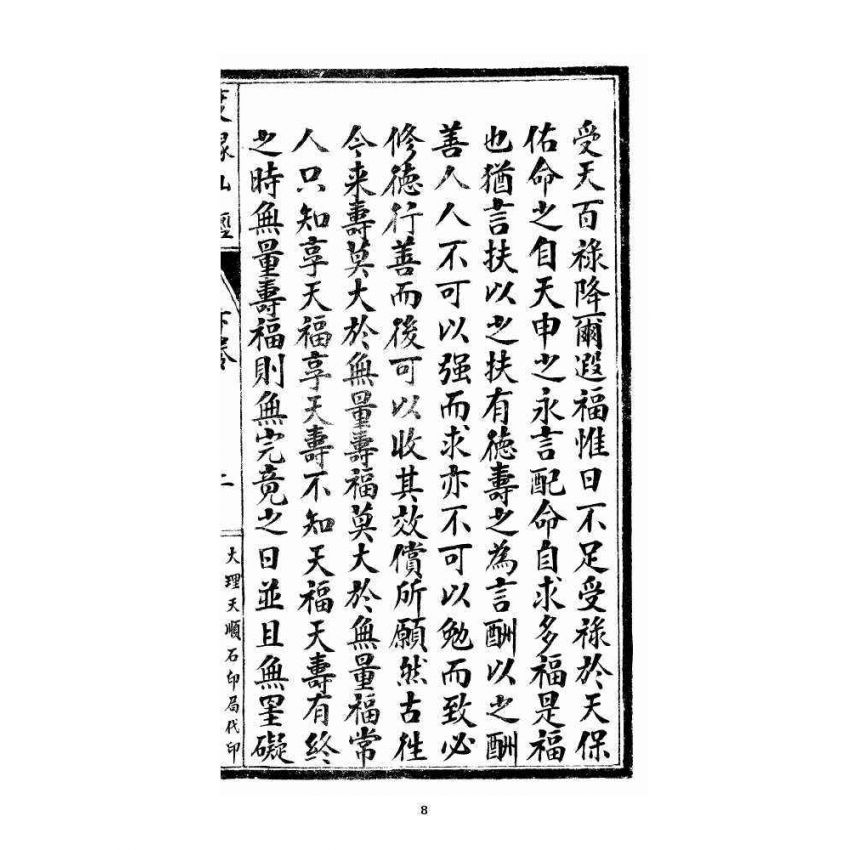 受天百祿降爾遐福惟日不足受祿於天保
佑命之自天申之永言配命自求多福是福
也猶言扶以之扶有德壽之為言酬以之酬
善人人不可以强而求亦不可以勉而致必
修德行善而後可以收其效償所願然古往
今来壽莫大於無量壽福莫大於無量福常
人只知享天福享天壽不知天福天壽有終
之時無量壽福則無完竟之日並且無罣礙
二
大理天順石印局代印
8